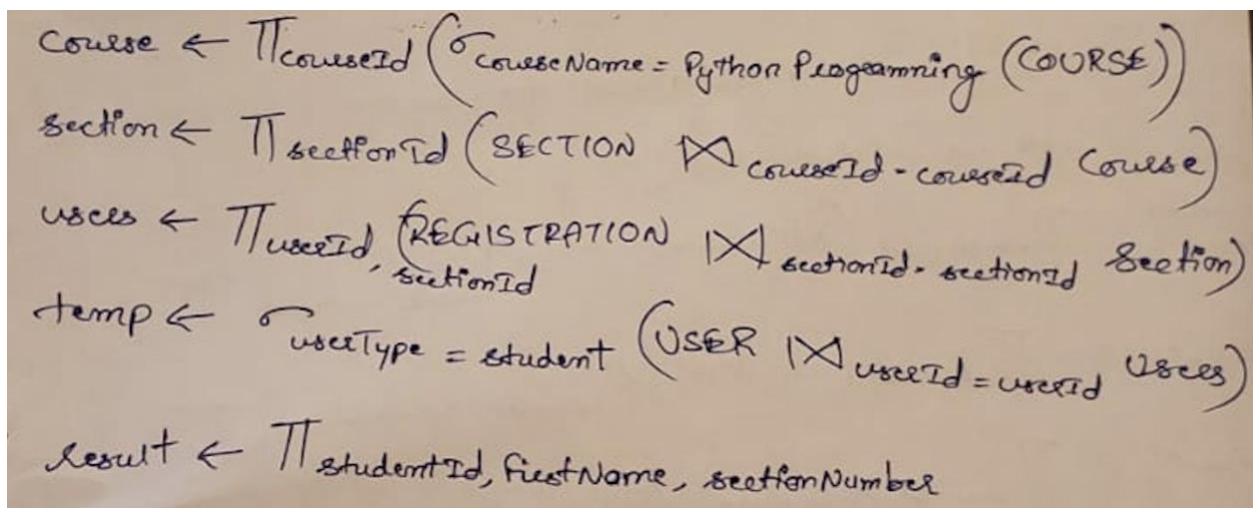 course ← π courseId (σ courseName = Python Programming (COURSE))
section ← π sectionId (SECTION ⋈ courseId = courseId Course)
users ← π userId, sectionId (REGISTRATION ⋈ sectionId = sectionId Section)
temp ← σ userType = student (USER ⋈ userId = userId Users)
result ← π studentId, firstName, sectionNumber